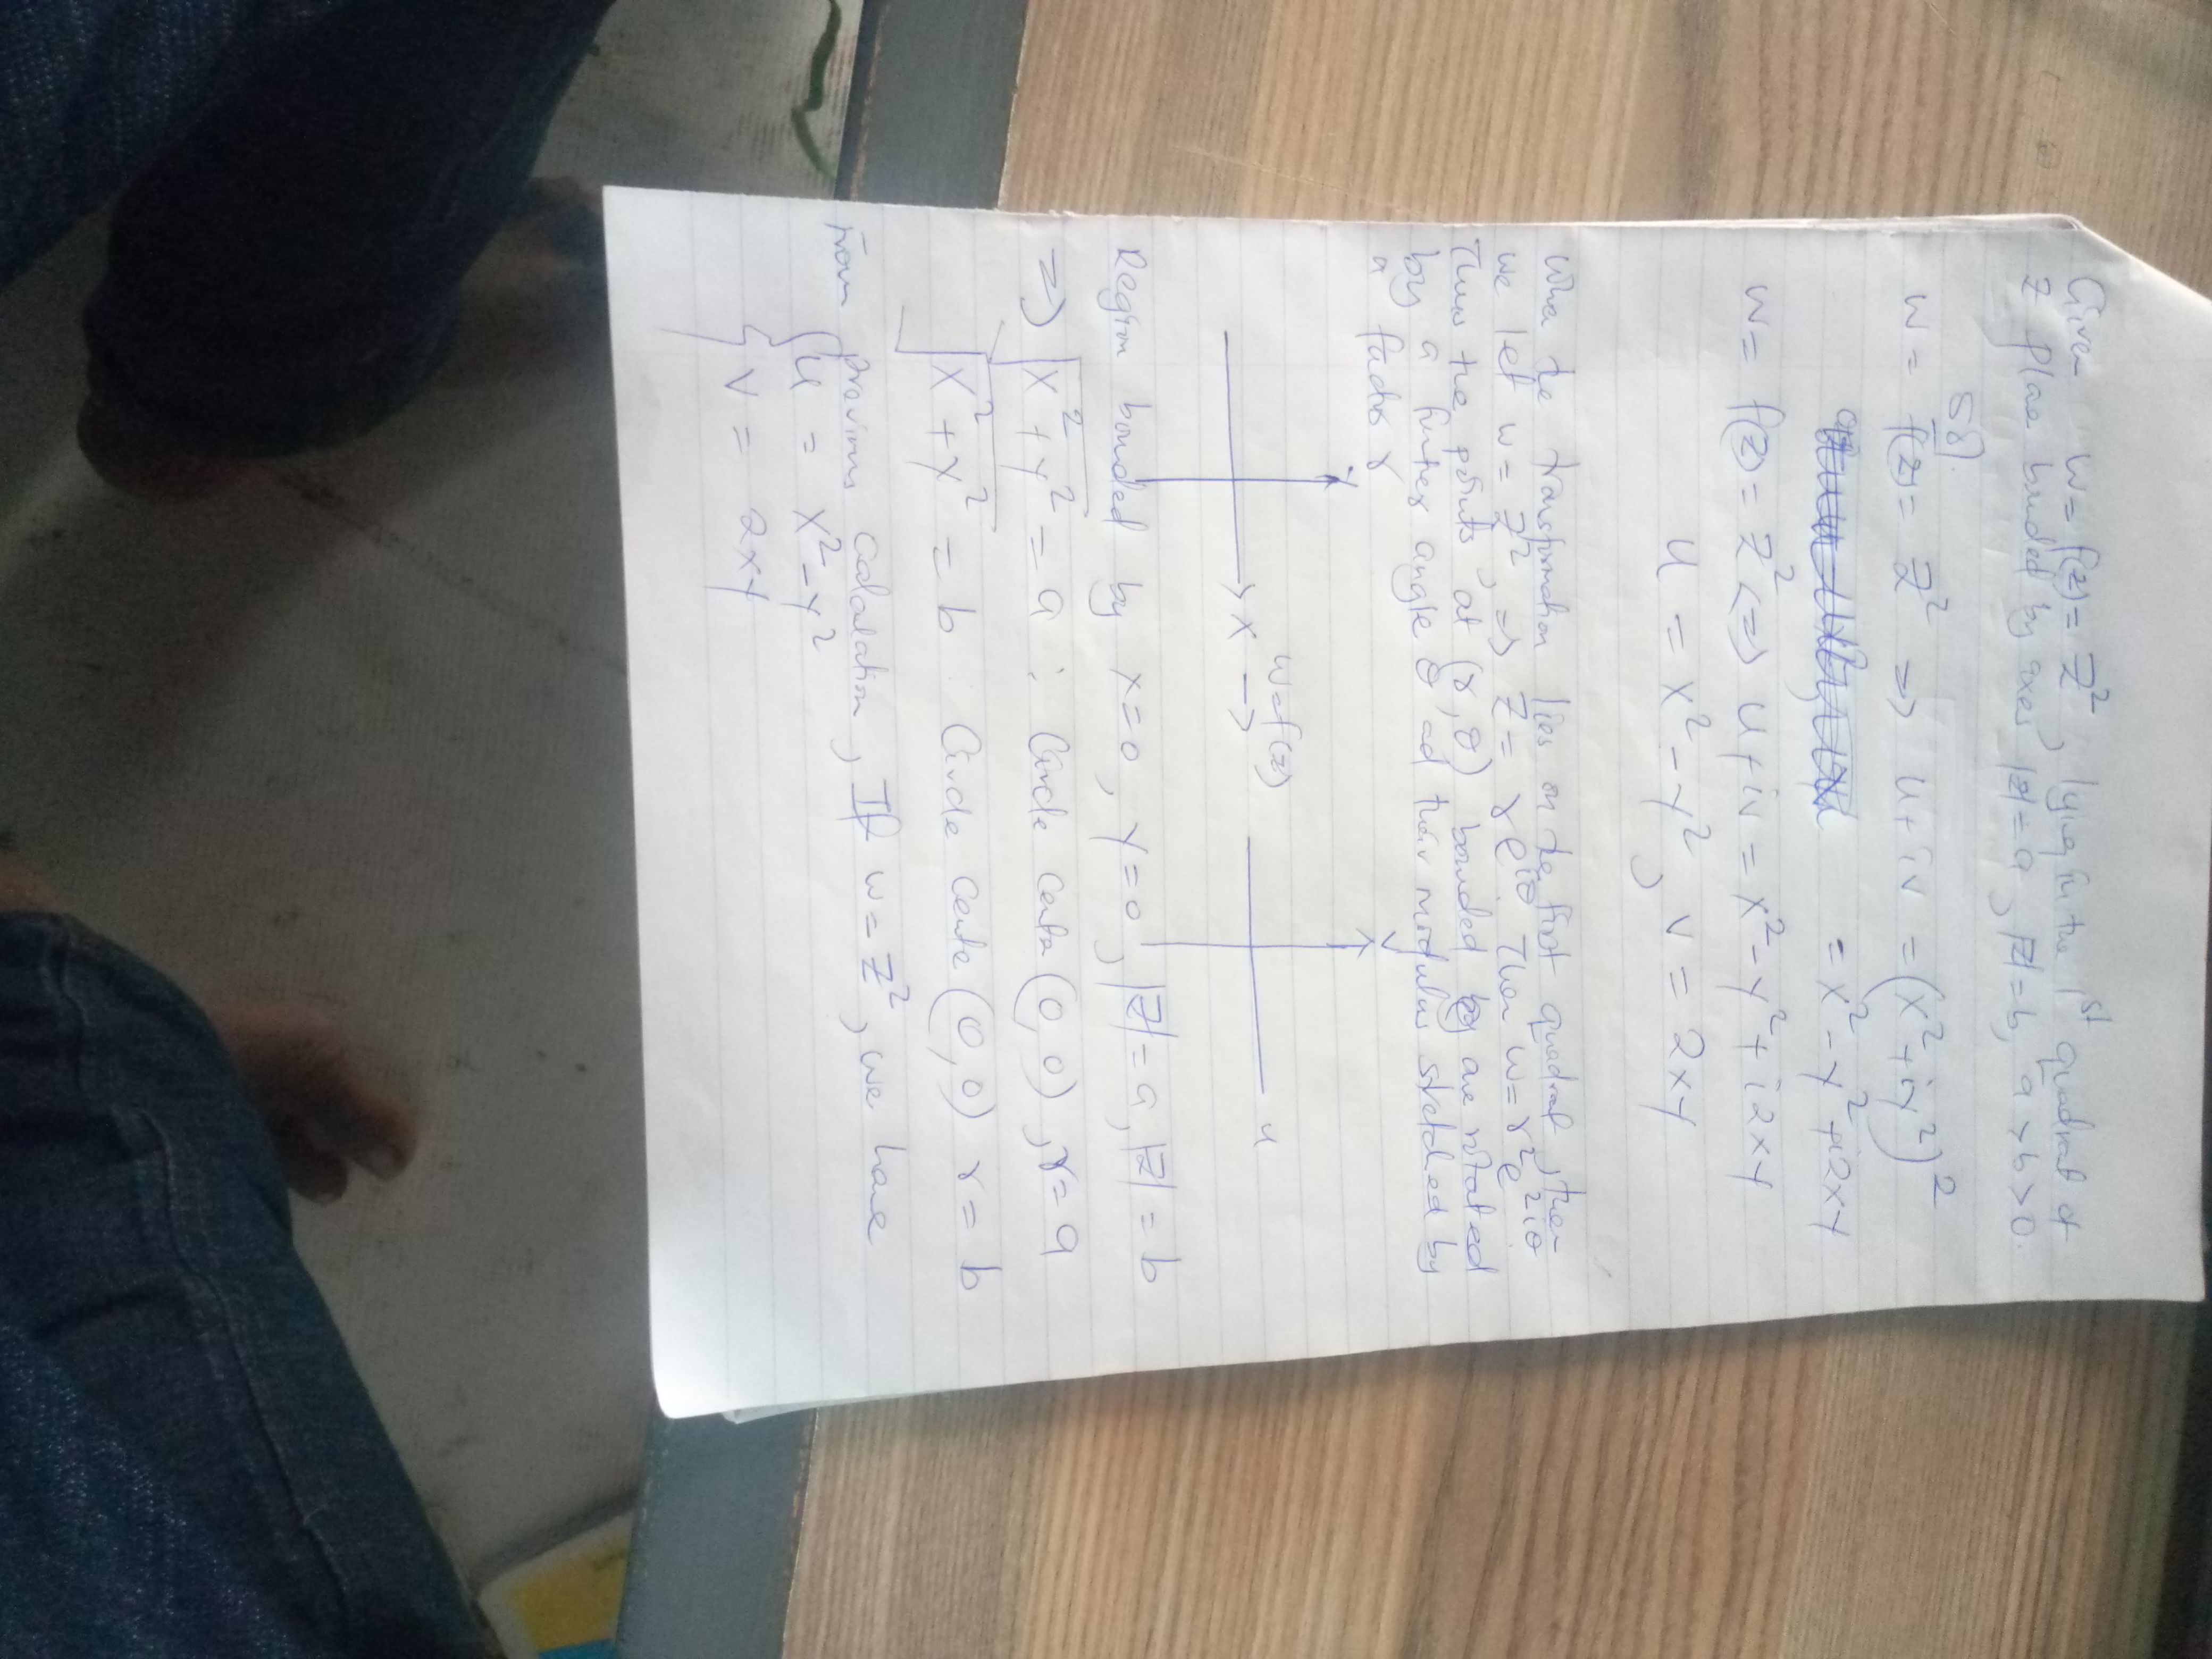 Given w = f(z) = z², lying in the 1st quadrant of
z plane bounded by axes |z| = a, |z| = b, a > b > 0.
Sol.
w = f(z) = z² => u + iv = (x² + iy²)²
= x² - y² + i2xy
w = f(z) = z² <=> u + iv = x² - y² + i2xy
u = x² - y², v = 2xy
the transformation lies on the first quadrant, then
we let w = z², => z = re^iθ then w = r²e^2iθ
Thus the points at (r, θ) bounded are rotated
by a further angle θ ad their modulus stretched by
a factor r
y
v
w = f(z)
x →
u
Region bounded by x = 0, y = 0, |z| = a, |z| = b
=> √x² + y² = a : Circle center (0, 0), r = a
√x² + y² = b Circle cente (0, 0) r = b
From previous calculation, If w = z², we have
{ u = x² - y²
v = 2xy